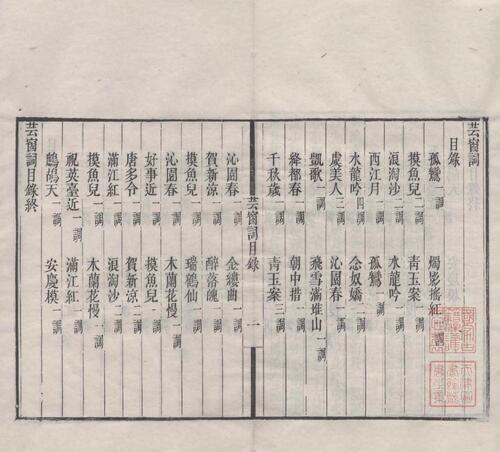 芸窗詞
目錄
孤鸞一調　燭影搖紅一調
摸魚兒二調　青玉案一調
浪淘沙二調　水龍吟一調
西江月一調　孤鸞一調
水龍吟四調　念奴嬌二調
虞美人三調　沁園春一調
凱歌一調　飛雪滿堆山一調
絳都春一調　朝中措一調
千秋歲一調　青玉案三調
芸窗詞目錄　一
沁園春一調　金縷曲一調
賀新涼一調　醉落魄一調
摸魚兒一調　瑞鶴仙一調
沁園春一調　木蘭花慢一調
好事近一調　摸魚兒一調
唐多令一調　賀新涼二調
滿江紅一調　浪淘沙二調
摸魚兒一調　木蘭花慢一調
祝英臺近一調　滿江紅一調
鷓鴣天一調　安慶模一調
芸窗詞目錄終